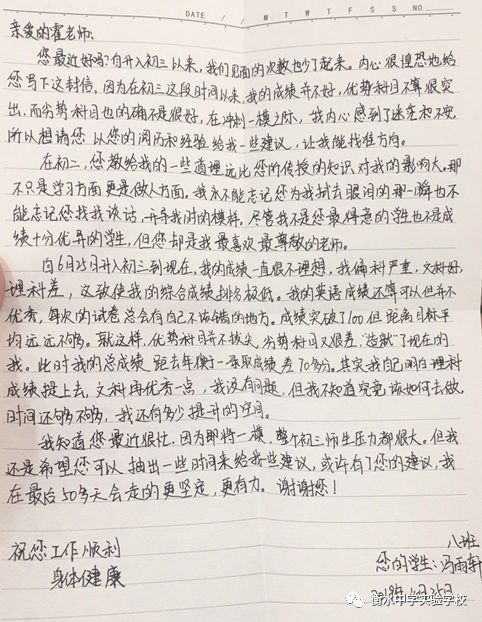 DATE / / M T W T F S S NO.
亲爱的霍老师:
您最近好吗?自升入初三以来,我们见面的次数也少了起来。内心很惶恐地给
您写下这封信,因为在初三这段时间以来,我的成绩并不好,优势科目不算很突
出,而劣势科目也的确不是很好,在冲刺一模之际,我内心感到了迷茫和不安
所以想请您以您的阅历和经验给我一些建议,让我能找准方向。
在初二,您教给我的一些道理远比您所传授的知识对我的影响大。那
不只是学习方面更是做人方面。我永不能忘记您为我拭去眼泪的那一瞬也不
能忘记您找我谈话,开导我时的模样。尽管我不是您最得意的学生也不是成
绩十分优异的学生,但您却是我最喜欢最尊敬的老师。
自6月25日升入初三到现在,我的成绩一直很不理想,我偏科严重,文科好,
理科差,这致使我的综合成绩排名极低。我的英语成绩还算可以但并不
优秀,每次的试卷总会有自己不该错的地方。成绩突破了100但距离目标平
均远远不够。就这样,优势科目并不拔尖,劣势科目又很差,“造就”了现在的
我。此时我的总成绩距去年衡一录取成绩差70多分。其实我自己明白理科
成绩提上去,文科再优秀一点,我没有问题,但我不知道究竟该如何去做,
时间还够不够,我还有多少提升的空间。
我知道您最近很忙,因为即将一模,整个初三师生压力都很大。但我
还是希望您可以抽出一些时间来给我些建议,或许有了您的建议,我
在最后50多天会走的更坚定,更有力。谢谢您!
祝您工作顺利
身体健康
八班
您的学生:冯雨轩
2018年4月25日
衡水中学实验学校